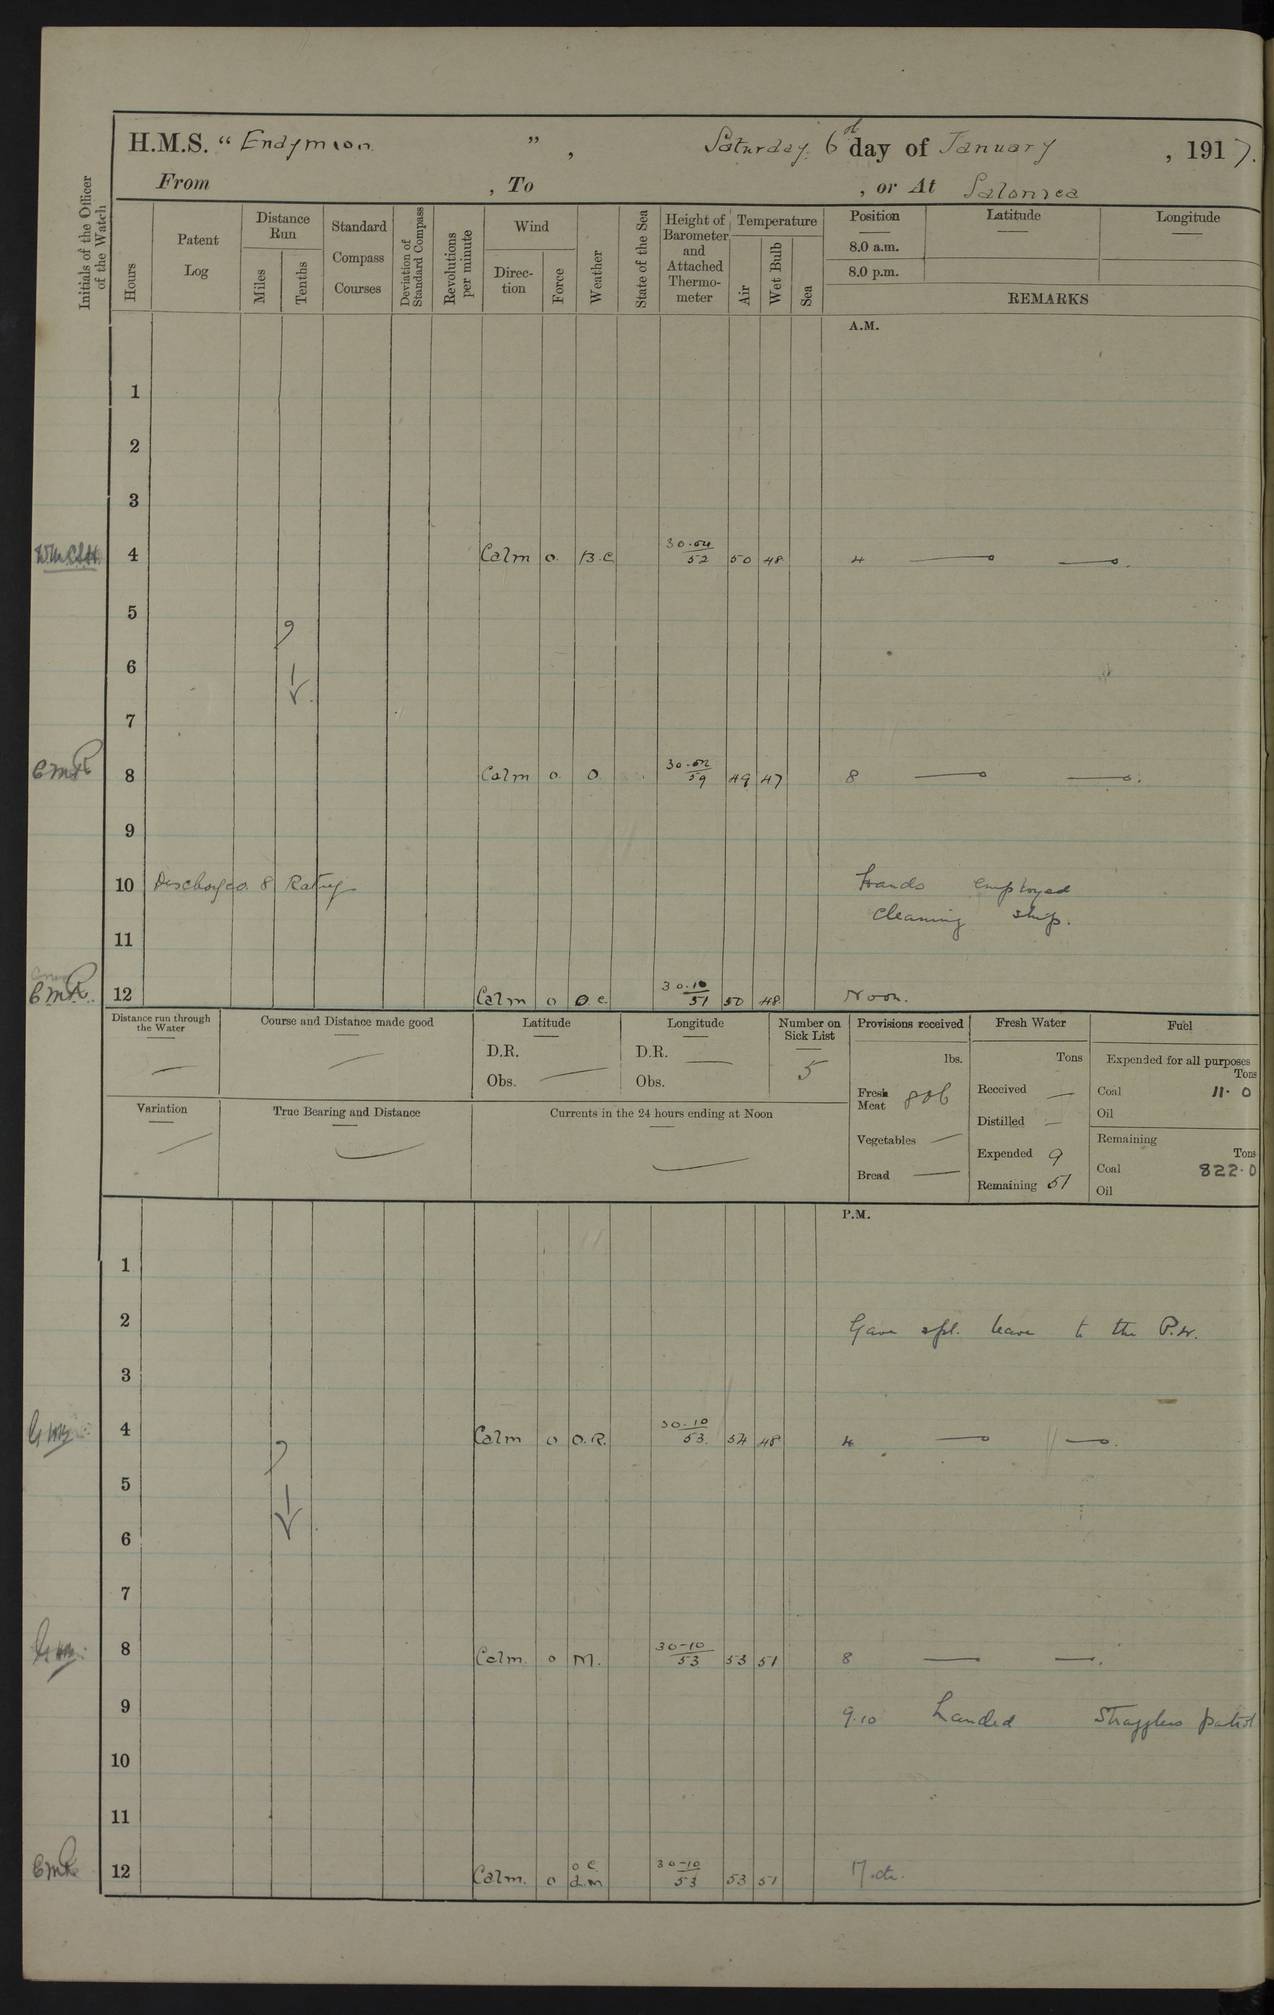 H.M.S. "Endymion", Saturday 6th day of January, 1917.
From , To , or At Salonica
Initials of the Officer of the Watch
Hours
Patent Log
Distance Run
Miles
Tenths
Standard Compass Courses
Deviation of Standard Compass
Revolutions per minute
Wind
Direction
Force
Weather
State of the Sea
Height of Barometer and Attached Thermometer
Temperature
Air
Wet Bulb
Sea
Position
Latitude
Longitude
8.0 a.m.
8.0 p.m.
REMARKS
A.M.
1
2
3
4 Calm 0. B.C 30.04 52 50 48 4
5
6
7
8 Calm 0 O 30.02 59 49 47 8
9
10 Discharged 8 Ratings Hands employed
cleaning ship.
11
12 Calm 0 O.C. 30.10 51 50 48 Noon.
Distance run through the Water
Course and Distance made good
Latitude
D.R.
Obs.
Longitude
D.R.
Obs.
Number on Sick List
5
Provisions received
lbs.
Fresh Meat 806
Vegetables
Bread
Fresh Water
Tons
Received
Distilled
Expended 9
Remaining 51
Fuel
Expended for all purposes
Tons
Coal 11.0
Oil
Remaining
Tons
Coal 822.0
Oil
Variation
True Bearing and Distance
Currents in the 24 hours ending at Noon
P.M.
1
2 Gave spl. leave to the P.W.
3
4 Calm 0 O.R. 30.10 53 54 48 4
5
6
7
8 Calm. 0 M. 30-10 53 53 51 8
9 9.10 Landed Stragglers patrol
10
11
12 Calm. 0 o c d.m 30-10 53 53 51